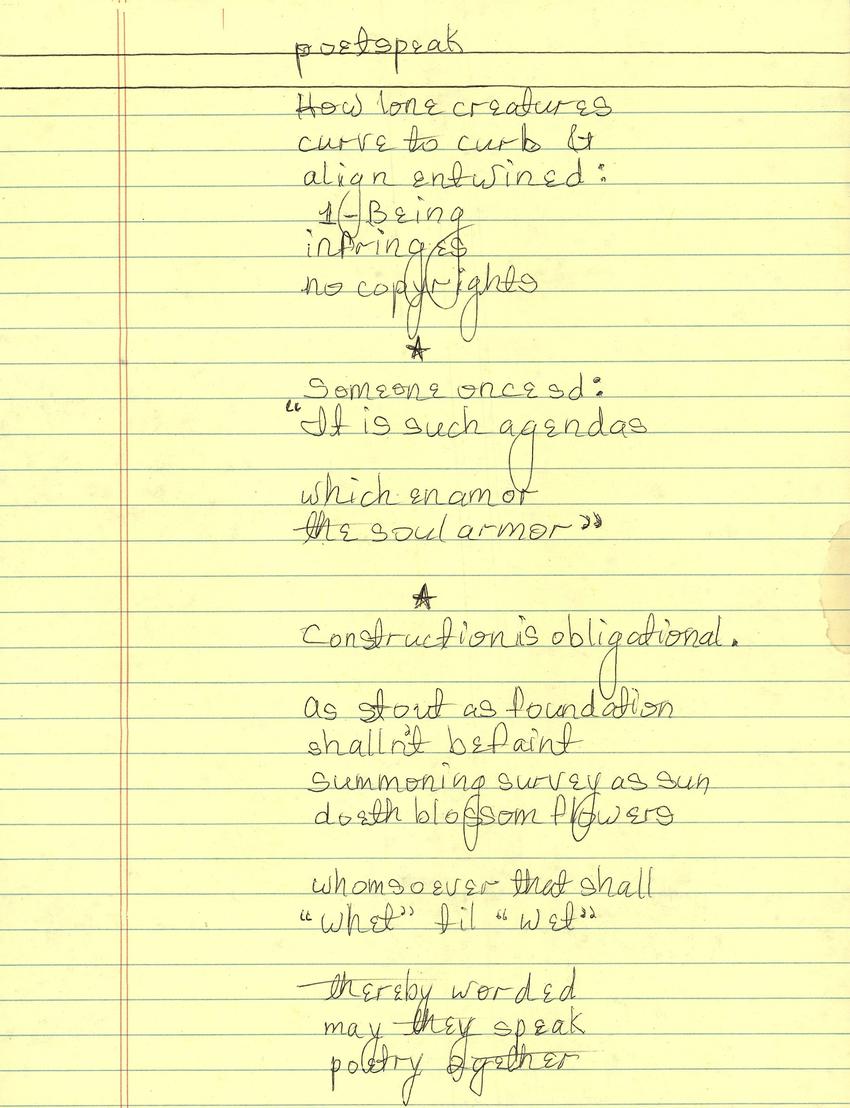 poetspeak
How lone creatures
curve to curb &
align entwined:
1(-)Being
infringes
no copyrights
★
Someone once sd:
"It is such agendas
which enamor
the soul armor"
★
Construction is obligational.
as stout as foundation
shalln't befaint
summoning survey as sun
doeth blossom flowers
whomsoever that shall
"whet" til "wet"
thereby worded
may they speak
poetry together